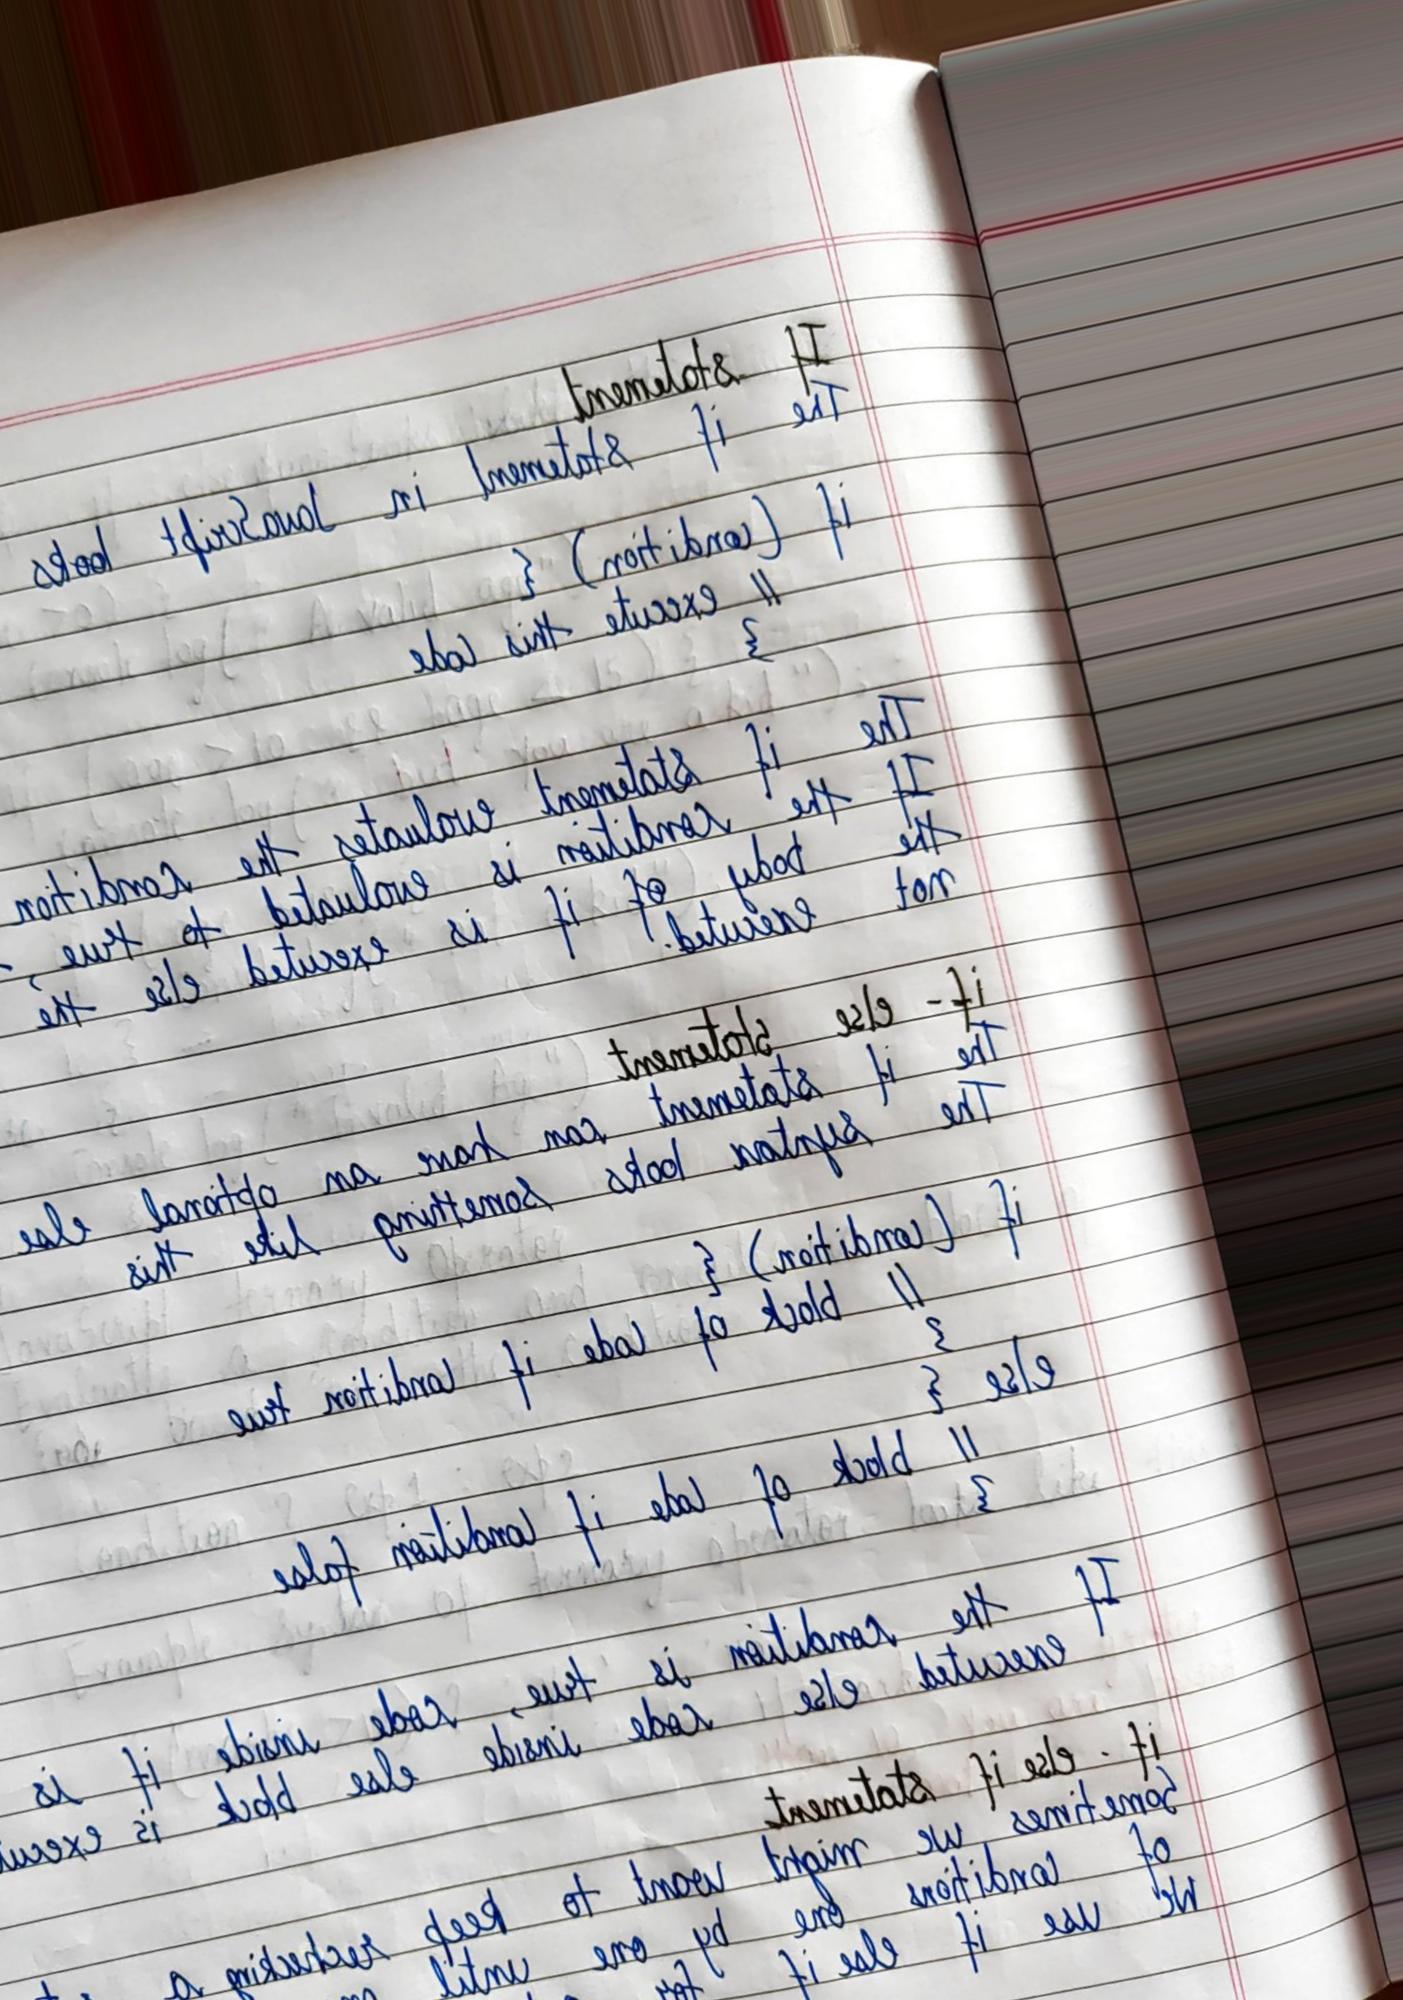 If statement
The if statement in JavaScript looks
if (condition) {
// execute this code
}
The if statement evaluates the condition
If the condition is evaluated to true,
the body of if is executed else the
not executed.
if - else statement
The if statement can have an optional else
The syntax looks something like this
if (condition) {
// block of code if condition true
}
else {
// block of code if condition false
}
If the condition is true, code inside if is
executed else code inside else block is
if - else if statement
Sometimes we might want to keep rechecking a
of conditions one by one until
We use if else if for